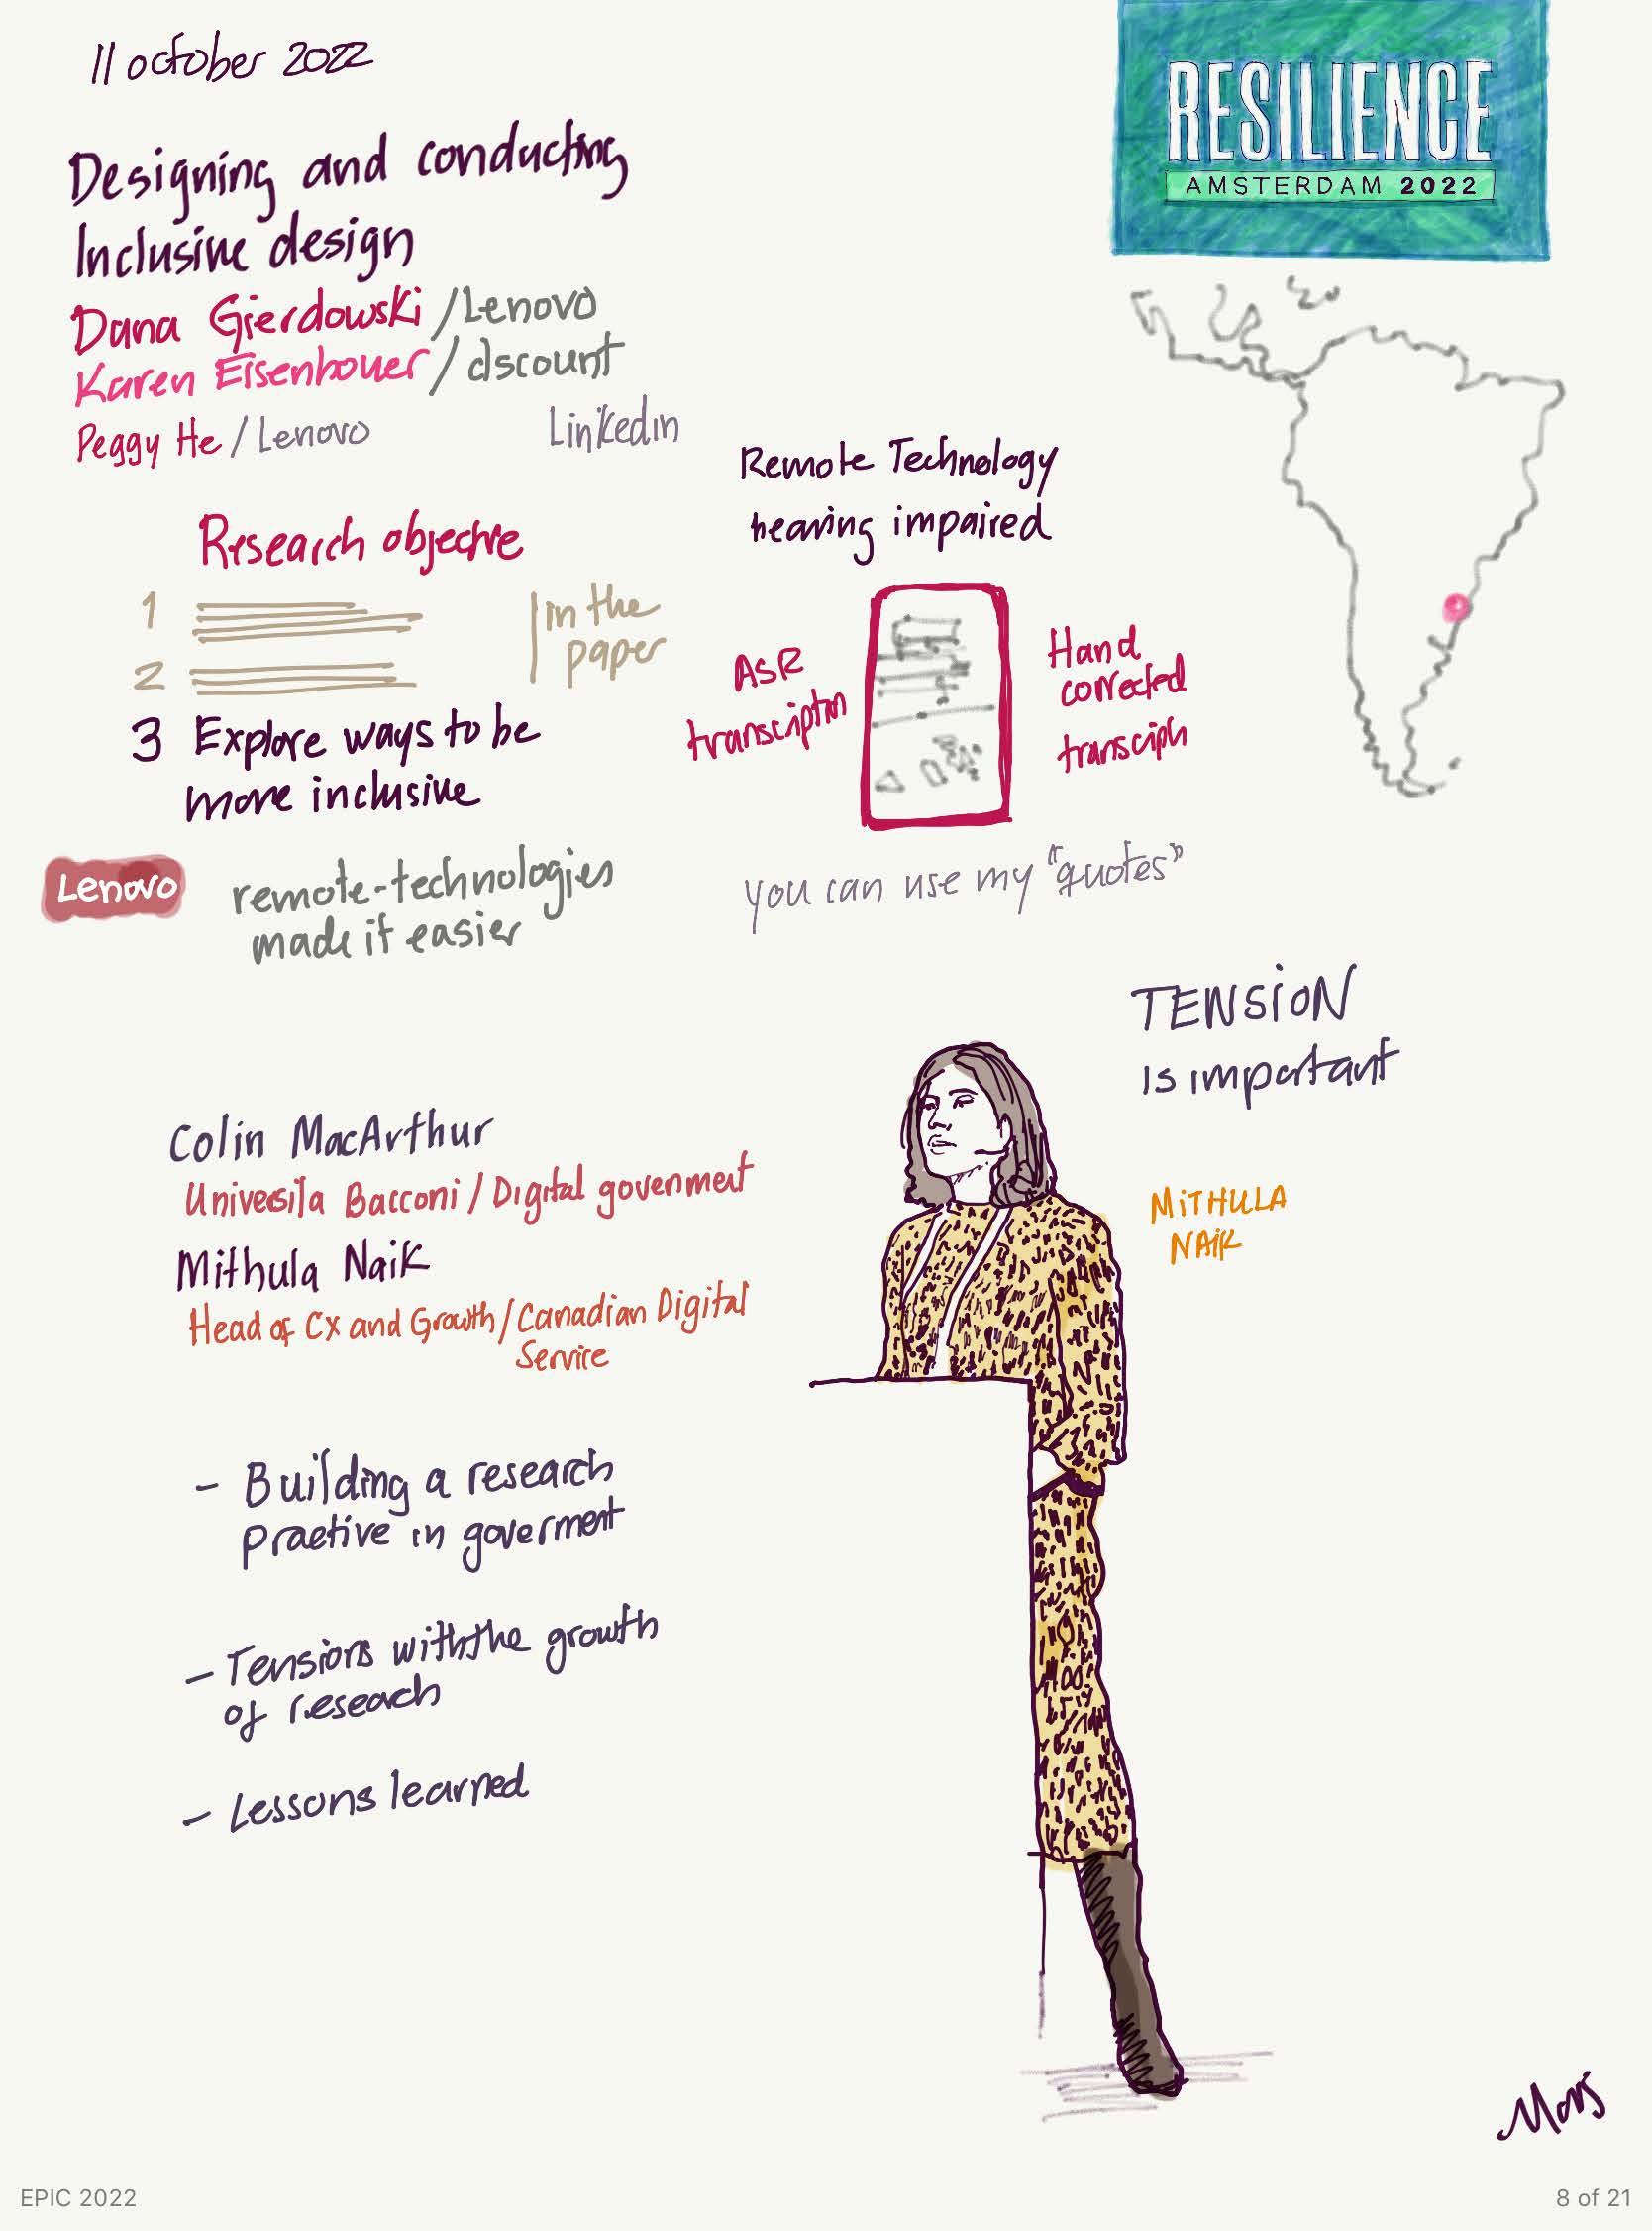 11 october 2022
RESILIENCE
AMSTERDAM 2022
Designing and conducting
Inclusive design
Dana Gierdowski / Lenovo
Karen Eisenhouer / dscount
Peggy He / Lenovo
Linkedin
Research objective
1
2
in the
paper
3 Explore ways to be
more inclusive
Remote Technology
hearing impaired
ASR
transcription
Hand
corrected
transciph
Lenovo
remote-technologies
made it easier
you can use my "quotes"
TENSION
is important
Colin MacArthur
Universila Bacconi / Digital govenment
Mithula Naik
Head of Cx and Growth / Canadian Digital
Service
MITHULA
NAIK
- Building a research
Practive in goverment
- Tensions with the growth
of reseach
- Lessons learned
EPIC 2022
8 of 21